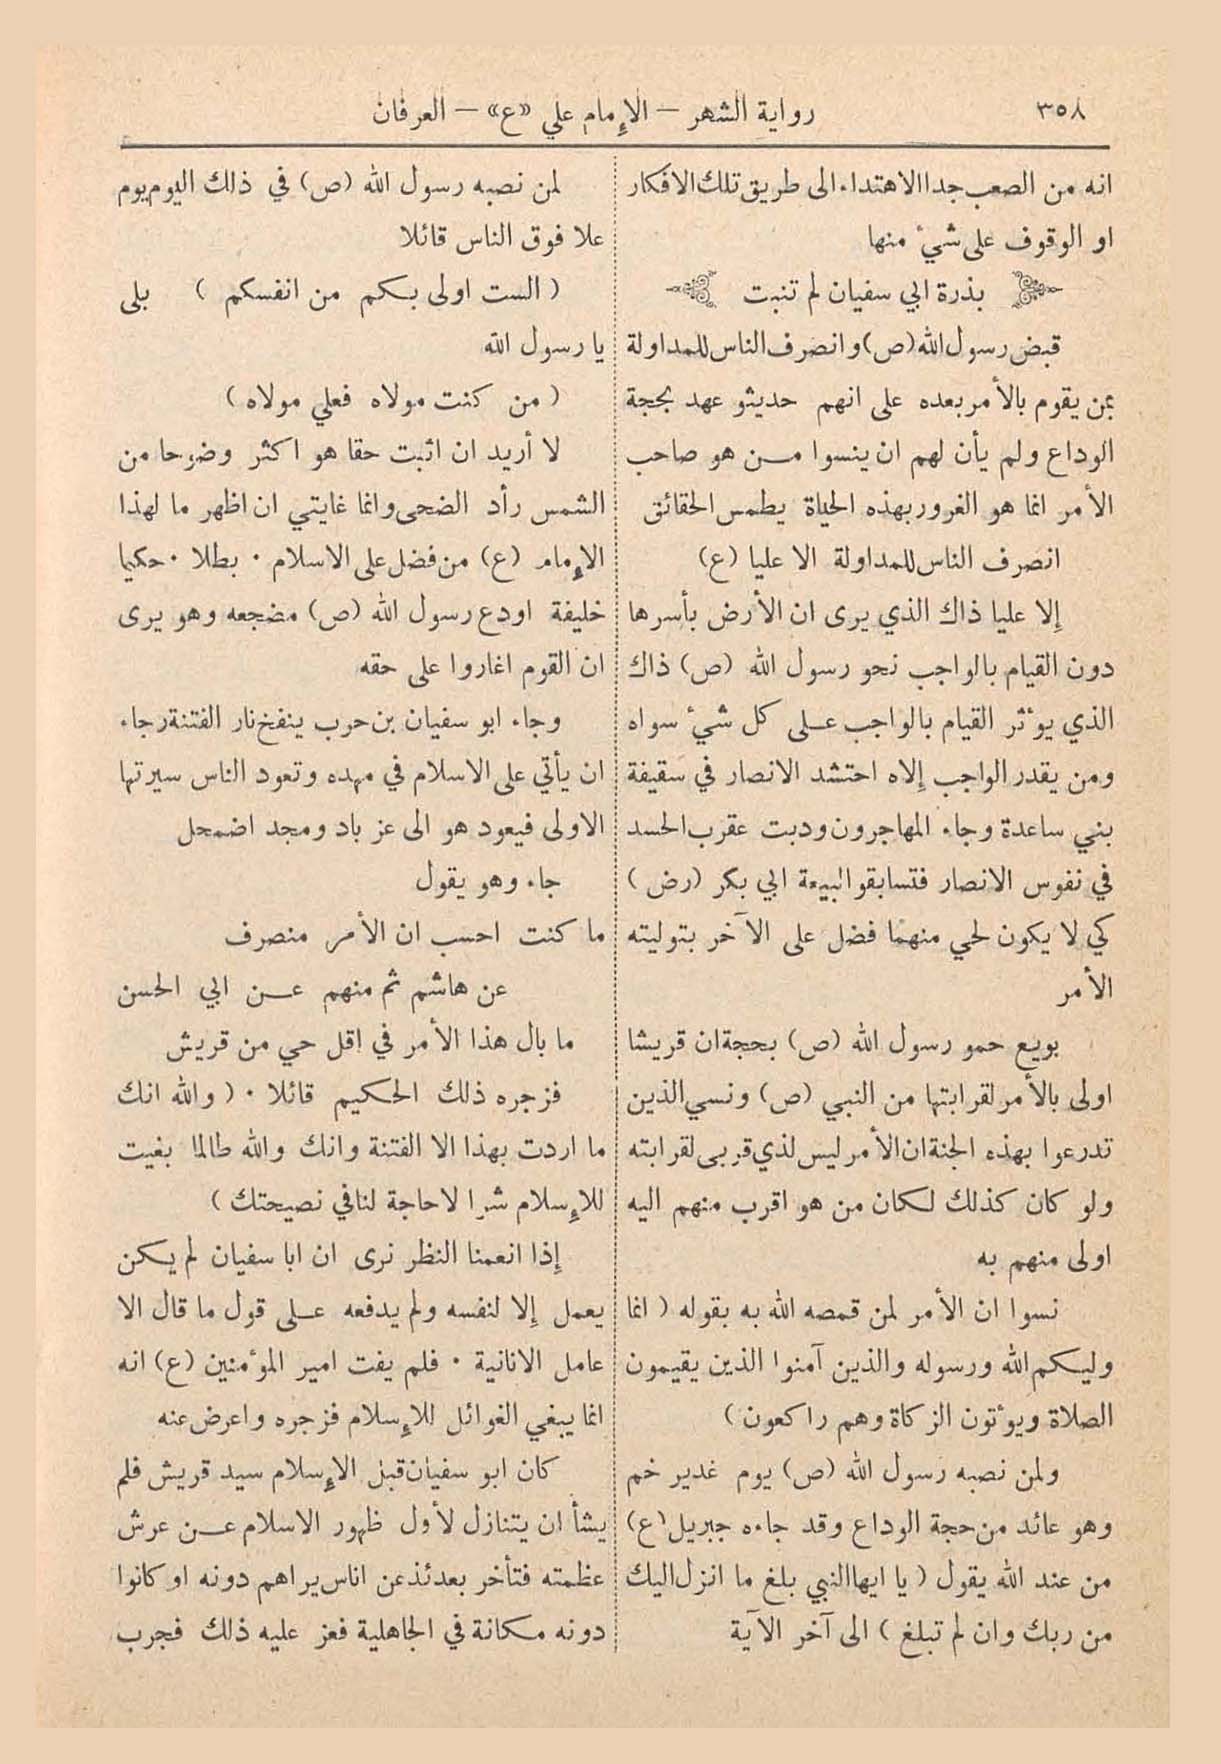 ٣٥٨
رواية الشهر — الإمام علي «ع» — العرفان
انه من الصعب جدا الاهتداء الى طريق تلك الافكار
او الوقوف على شيء منها
بذرة ابي سفيان لم تنبت
قبض رسول الله (ص) وانصرف الناس للمداولة
بمن يقوم بالأمر بعده على انهم حديثو عهد بحجة
الوداع ولم يأن لهم ان ينسوا مـن هو صاحب
الأمر انما هو الغرور بهذه الحياة يطمس الحقائق
انصرف الناس للمداولة الا عليا (ع)
إلا عليا ذاك الذي يرى ان الأرض بأسرها
دون القيام بالواجب نحو رسول الله (ص) ذاك
الذي يؤثر القيام بالواجب عـلى كل شيء سواه
ومن يقدر الواجب إلاه احتشد الانصار في سقيفة
بني ساعدة وجاء المهاجرون ودبت عقرب الحسد
في نفوس الانصار فتسابقوا لبيعة ابي بكر (رض)
كي لا يكون لحي منهما فضل على الآخر بتوليته
الأمر
بويع حمو رسول الله (ص) بحجة ان قريشا
اولى بالأمر لقرابتها من النبي (ص) ونسي الذين
تدرعوا بهذه الجنة ان الأمر ليس لذي قربى لقرابته
ولو كان كذلك لكان من هو اقرب منهم اليه
اولى منهم به
نسوا ان الأمر لمن قمصه الله به بقوله ( انما
وليكم الله ورسوله والذين آمنوا الذين يقيمون
الصلاة ويؤتون الزكاة وهم راكعون )
ولمن نصبه رسول الله (ص) يوم غدير خم
وهو عائد من حجة الوداع وقد جاءه جبريل (ع)
من عند الله يقول ( يا ايها النبي بلغ ما انزل اليك
من ربك وان لم تبلغ ) الى آخر الآية
لمن نصبه رسول الله (ص) في ذلك اليوم يوم
علا فوق الناس قائلا
( الست اولى بكم من انفسكم ) بلى
يا رسول الله
( من كنت مولاه فعلي مولاه )
لا أريد ان اثبت حقا هو اكثر وضوحا من
الشمس رأد الضحى وانما غايتي ان اظهر ما لهذا
الإمام (ع) من فضل على الاسلام . بطلا . حكيما
خليفة اودع رسول الله (ص) مضجعه وهو يرى
ان القوم اغاروا على حقه
وجاء ابو سفيان بن حرب ينفخ نار الفتنة رجاء
ان يأتي على الاسلام في مهده وتعود الناس سيرتها
الاولى فيعود هو الى عز باد ومجد اضمحل
جاء وهو يقول
ما كنت احسب ان الأمر منصرف
عن هاشم ثم منهم عـن ابي الحسن
ما بال هذا الأمر في اقل حي من قريش
فزجره ذلك الحكيم قائلا . ( والله انك
ما اردت بهذا الا الفتنة وانك والله طالما بغيت
للإسلام شرا لا حاجة لنا في نصيحتك )
إذا انعمنا النظر نرى ان ابا سفيان لم يكن
يعمل إلا لنفسه ولم يدفعه عـلى قول ما قال الا
عامل الانانية . فلم يفت امير المؤمنين (ع) انه
انما يبغي الغوائل للإسلام فزجره واعرض عنه
كان ابو سفيان قبل الإسلام سيد قريش فلم
يشأ ان يتنازل لأول ظهور الاسلام عـن عرش
عظمته فتأخر بعدئذ عن اناس يراهم دونه او كانوا
دونه مكانة في الجاهلية فعز عليه ذلك فجرب